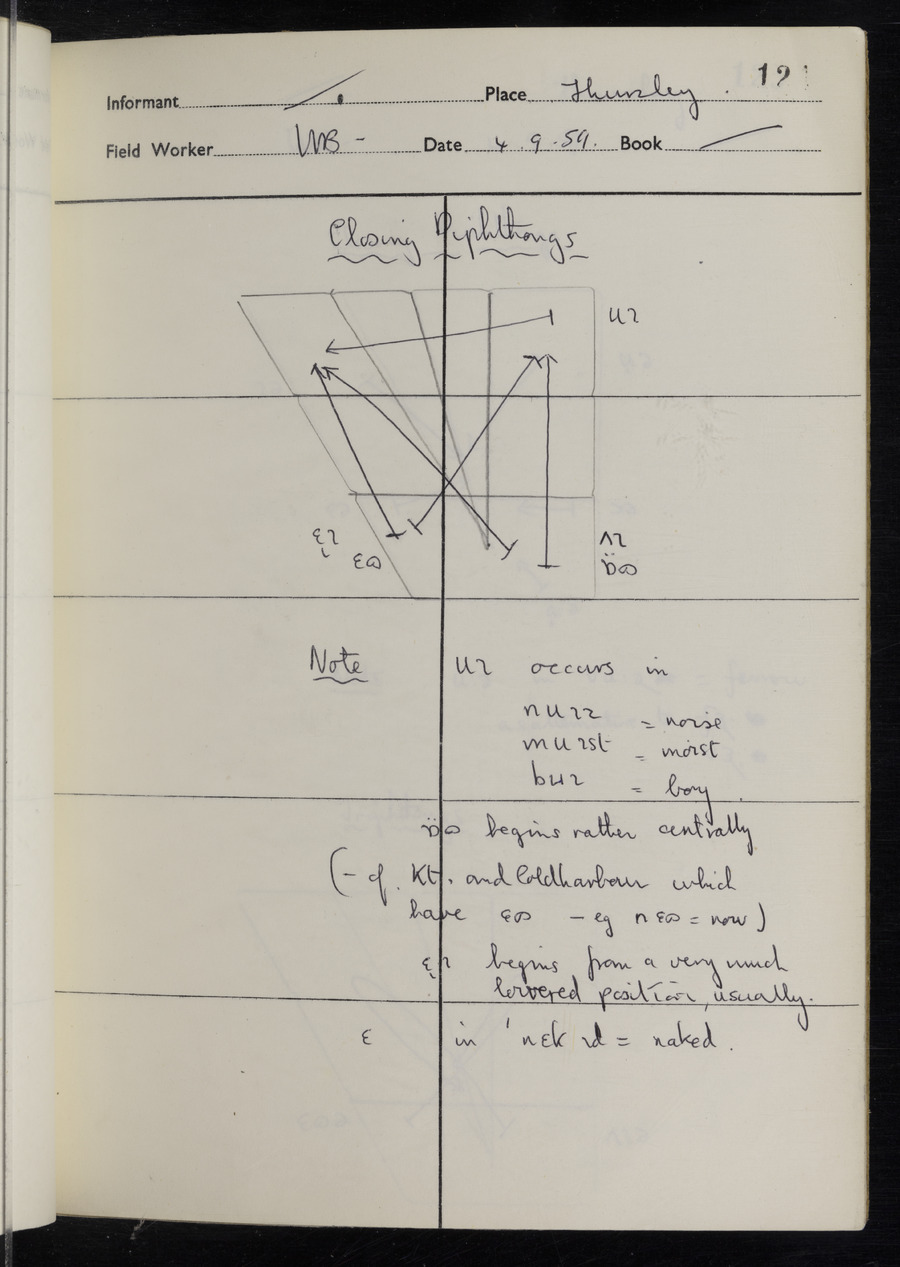 12
Informant / . Place Thursley .
Field Worker WB - Date 4 . 9 . 59. Book /
Closing Diphthongs
uɪ
ɛ̞ɪ ʌɪ
ɛɷ ɒ̈ɷ
Note uɪ occurs in
nuɪz = noise
muɪst = moist
buɪ = boy .
ɒ̈ɷ begins rather centrally
(- cf. Kt. and Coldharbour which
have ɛɷ - eg nɛɷ = now)
ɛ̞ɪ begins from a very much
lowered position, usually.
ɛ in ˈnɛkɪd = naked .